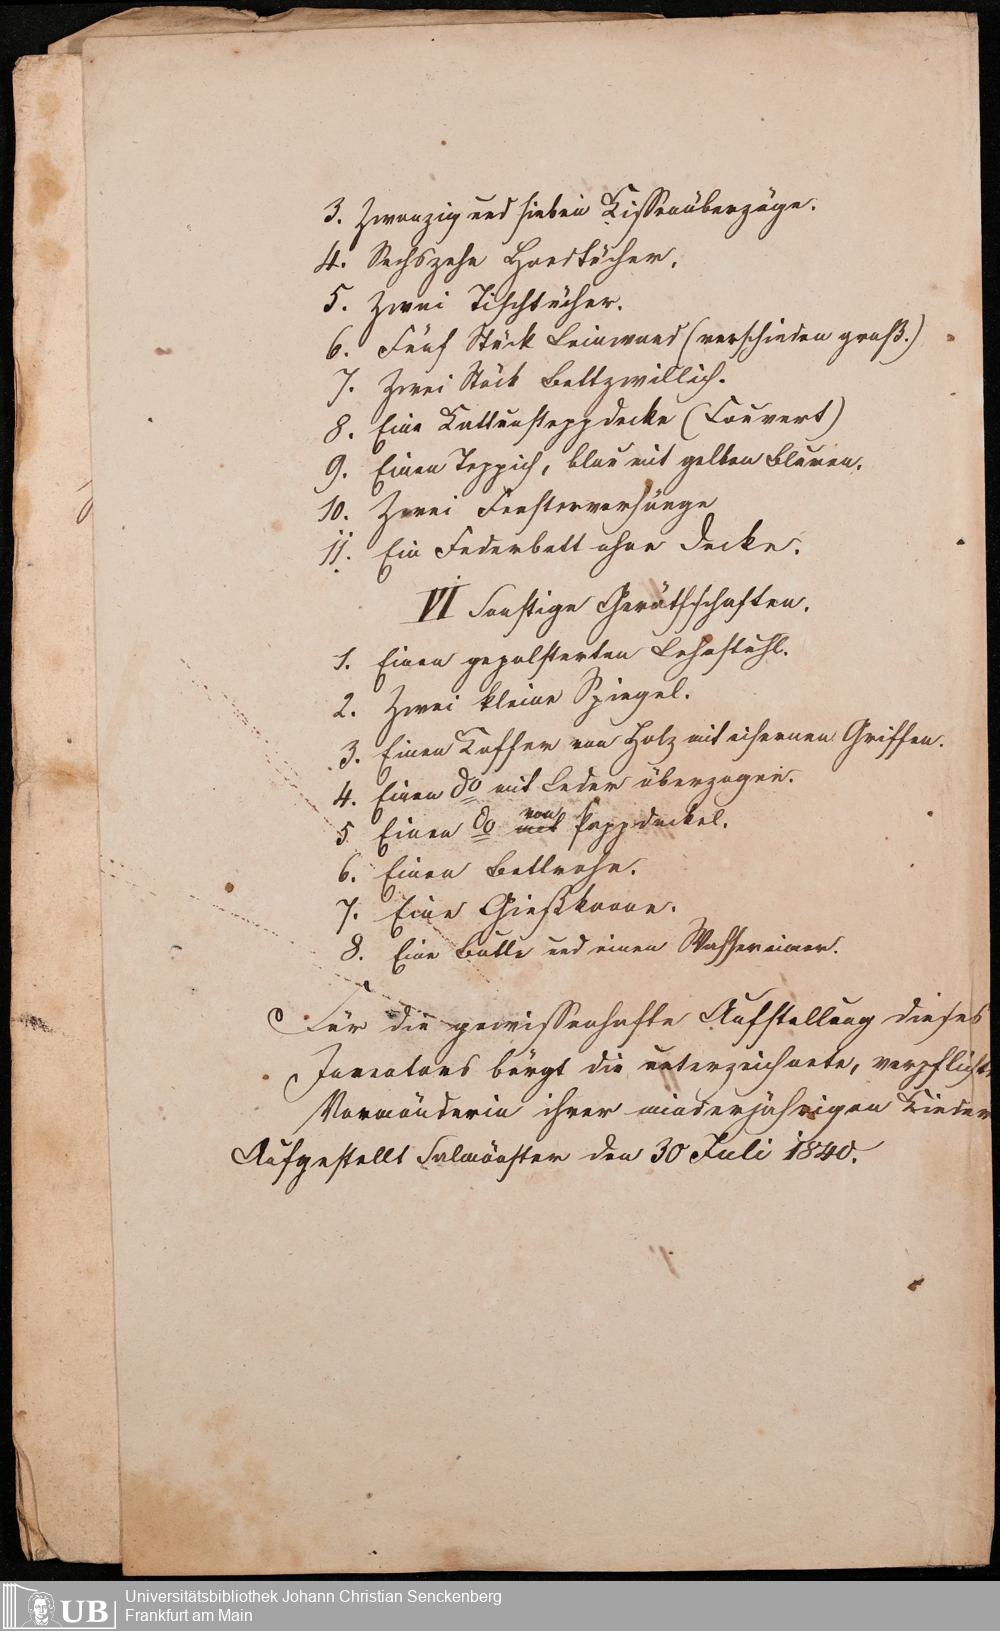 3. Zwanzig und sieben Kissenüberzüge.
4. Sechszehn Handtücher.
5. Zwei Tischtücher.
6. Fünf Stück Leinwand (verschieden groß.)
7. Zwei Stück Bettzwillich.
8. Eine Kattunsteppdecke (Couvert)
9. Einen Teppich, blau mit gelben Blumen.
10. Zwei Fenstervorhänge
11. Ein Federbett ohne Decke.
VI Sonstige Geräthschaften.
1. Einen gepolsterten Lehnstuhl.
2. Zwei kleine Spiegel.
3. Einen Koffer von Holz mit eisernen Griffen.
4. Einen do mit Leder überzogen.
5 Einen do mit von Pappdeckel.
6. Einen
7. Eine Gießkanne.
8. Eine Butte und einen Wassereimer.
Für die gewissenhafte Aufstellung dieses
Inventars bürgt die unterzeichnete, verpflicht
Vormünderin ihrer minderjährigen Kinder
Aufgestellt Salmünster den 30 Juli 1840.
Universitätsbibliothek Johann Christian Senckenberg
Frankfurt am Main
UB